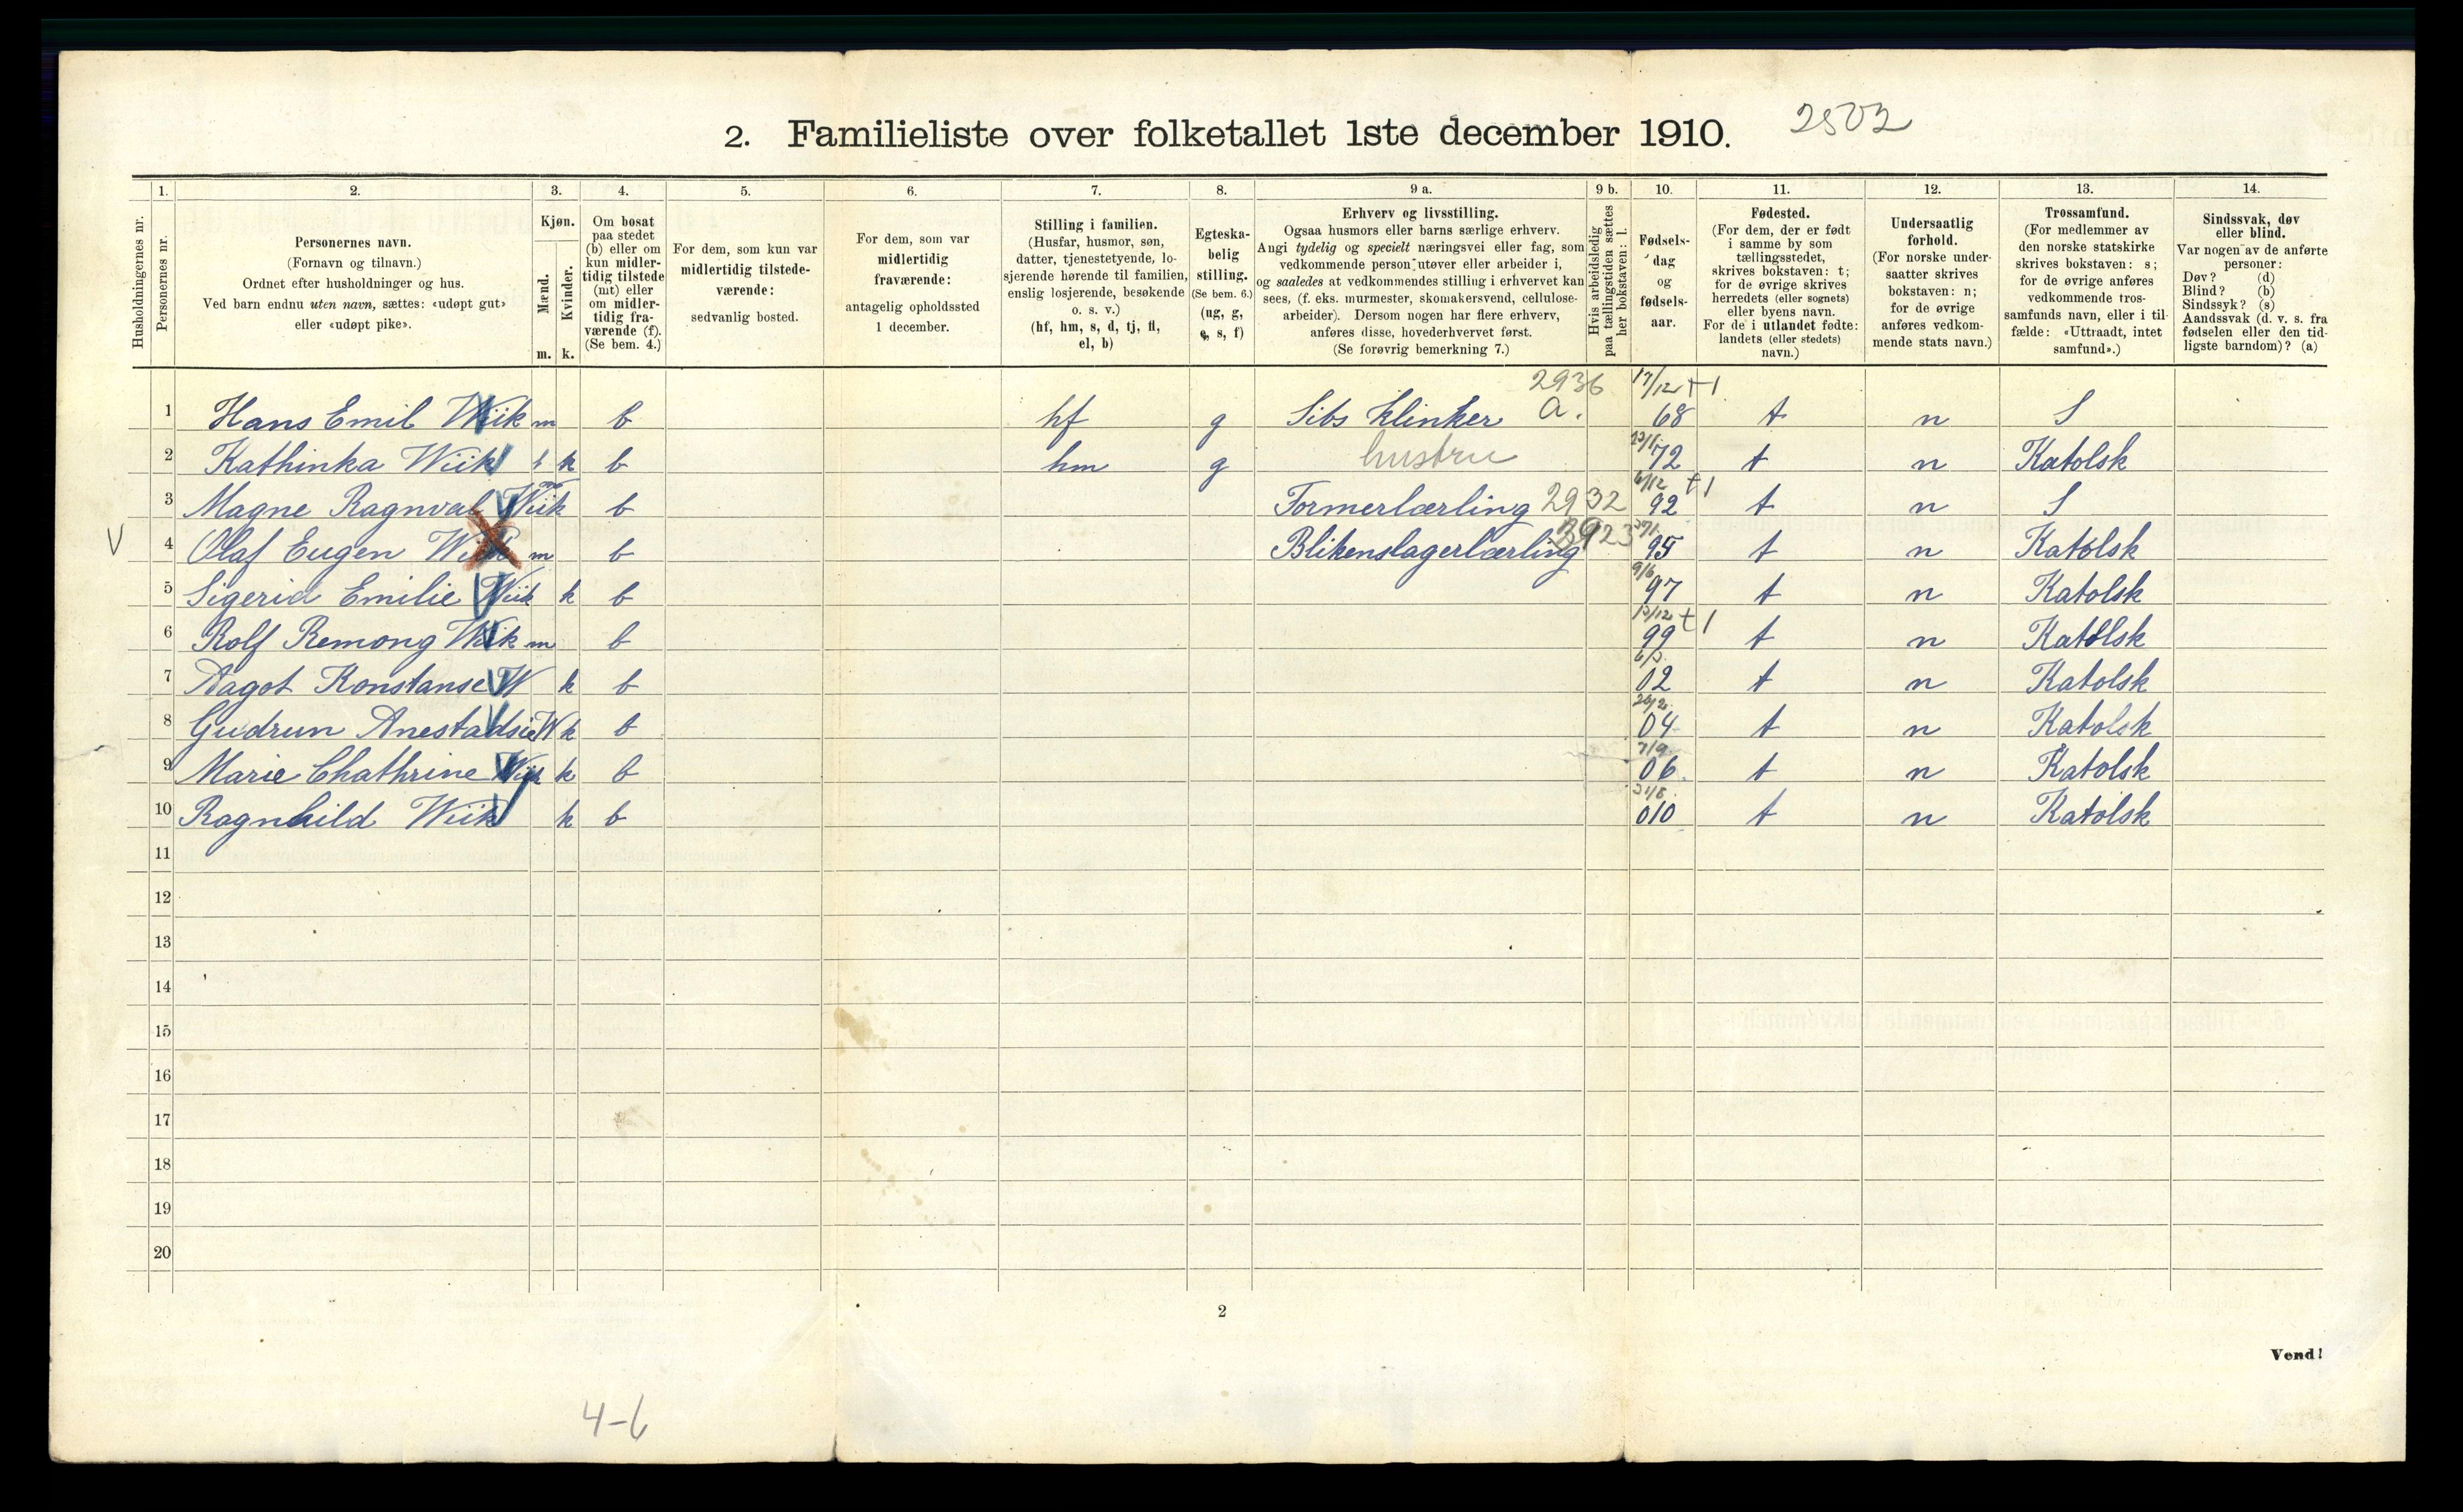 2. Familieliste over folketallet 1ste december 1910. 2502
1. 2. 3. 4. 5. 6. 7. 8. 9 a. 9 b. 10. 11. 12. 13. 14.
Husholdningernes nr.
Personernes nr.
Personernes navn.
(Fornavn og tilnavn.)
Ordnet efter husholdninger og hus.
Ved barn endnu uten navn, sættes: «udøpt gut»
eller «udøpt pike».
Kjøn.
Mænd.
Kvinder.
m. k.
Om bosat
paa stedet
(b) eller om
kun midler-
tidig tilstede
(mt) eller
om midler-
tidig fra-
værende (f).
(Se bem. 4.)
For dem, som kun var
midlertidig tilstede-
værende:
sedvanlig bosted.
For dem, som var
midlertidig
fraværende:
antagelig opholdssted
1 december.
Stilling i familien.
(Husfar, husmor, søn,
datter, tjenestetyende, lo-
sjerende hørende til familien,
enslig losjerende, besøkende
o. s. v.)
(hf, hm, s, d, tj, fl,
el, b)
Egteska-
belig
stilling.
(Se bem. 6.)
(ug, g,
e, s, f)
Erhverv og livsstilling.
Ogsaa husmors eller barns særlige erhverv.
Angi tydelig og specielt næringsvei eller fag, som
vedkommende person utøver eller arbeider i,
og saaledes at vedkommendes stilling i erhvervet kan
sees, (f. eks. murmester, skomakersvend, cellulose-
arbeider). Dersom nogen har flere erhverv,
anføres disse, hovederhvervet først.
(Se forøvrig bemerkning 7.)
Hvis arbeidsledig
paa tællingstiden sættes
her bokstaven: l.
Fødsels-
dag
og
fødsels-
aar.
Fødested.
(For dem, der er født
i samme by som
tællingsstedet,
skrives bokstaven: t;
for de øvrige skrives
herredets (eller sognets)
eller byens navn.
For de i utlandet fødte:
landets (eller stedets)
navn.)
Undersaatlig
forhold.
(For norske under-
saatter skrives
bokstaven: n;
for de øvrige
anføres vedkom-
mende stats navn.)
Trossamfund.
(For medlemmer av
den norske statskirke
skrives bokstaven: s;
for de øvrige anføres
vedkommende tros-
samfunds navn, eller i til-
fælde: «Uttraadt, intet
samfund».)
Sindssvak, døv
eller blind.
Var nogen av de anførte
personer:
Døv? (d)
Blind? (b)
Sindssyk? (s)
Aandssvak (d. v. s. fra
fødselen eller den tid-
ligste barndom)? (a)
2936 17/12 +1
1 Hans Emil Wiik m b hf g Sibs Klinker a. 68 t n S
2 Kathinka Wiik k b hm g hustru 72 t n Katolsk
6/12 +1
3 Magne Ragnval Wiik m b Formerlærling 2932 92 t n S
V 4 Olaf Eugen Wiik m b Blikenslagerlærling 95 t n Katolsk
9/6
5 Sigerid Emilie Wiik k b 97 t n Katolsk
13/12 +1
6 Rolf Remong Wiik m b 99 t n Katolsk
7 Dagot Konstanse W k b 02 t n Katolsk
8 Gudrun Anestadsie W k b 04 t n Katolsk
7/9
9 Marie Chathrine Wiik k b 06. t n Katolsk
10 Ragnhild Wiik k b 010 t n Katolsk
11
12
13
14
15
16
17
18
19
20
2
Vend!
4-6